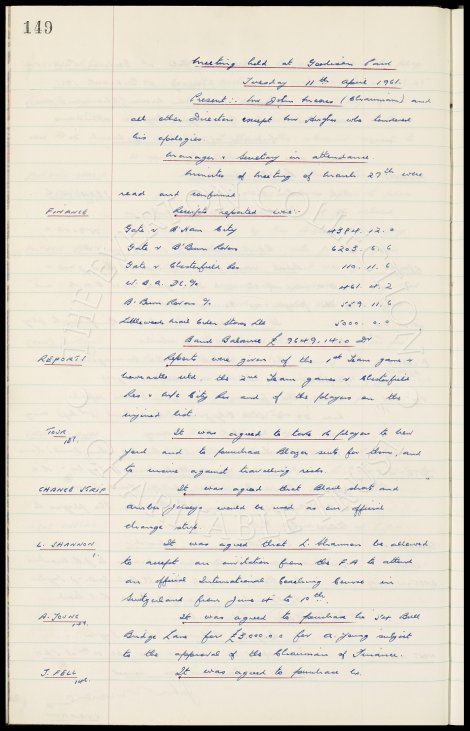 149
Meeting held at Goodison Park
Tuesday 11th April 1961.
Present:- Mr John Moores (Chairman) and
all other Directors except Mr Hughes who tendered
his apologies.
Manager & Secretary in attendance
Minutes of Meeting of March 27th were
read and confirmed
FINANCE Receipts reported were:-
Gate v B'Ham City 4384. 12. 0
Gate v B'Burn Rovers 6203. 5. 6
Gate v Chesterfield Res 110. 11. 6
W. B. A. % 461. 4. 2
B. Burn Rovers % 559. 11. 6
Littlewoods Mail Order Stores Ltd 5000. 0. 0
Bank Balance £ 9649. 14. 0 Dr
REPORTS Reports were given of the 1st Team game v
Newcastle Utd, the 2nd Team games v Chesterfield
Res & City Res and of the players on the
injured list.
TOUR It was agreed to take players to New
York and to purchase Blazer suits for them, and
to insure against travelling risks.
CHANGE STRIP It was agreed that Black shorts and
Amber Jerseys would be used as an official
change strip.
L. SHANNON It was agreed that L. Shannon be allowed
to accept an invitation from the F.A to attend
an official International Coaching Course in
Switzerland from June 4 to 10th.
A. YOUNG It was agreed to purchase Bull
Bridge Lane for £3,000.0.0 for A. Young subject
to the approval of the Chairman of Finance.
J. FELL It was agreed to purchase
THE EVERTON COLLECTION
CHARITABLE TRUST